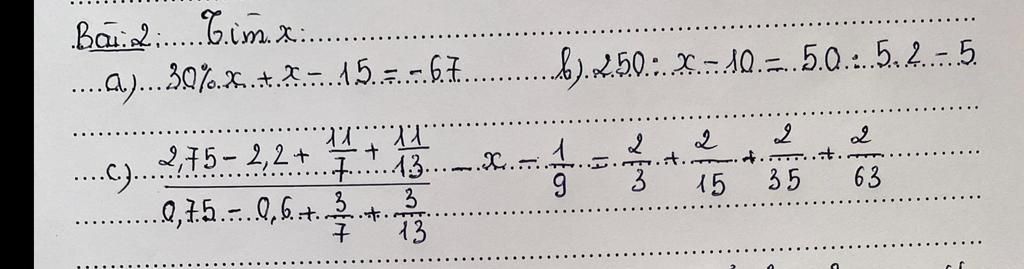 Bài 2: Tìm x:
a) 30% x + x - 15 = -67 b) 250 : x - 10 = 50 : 5.2 - 5
c) \frac{2,75 - 2,2 + \frac{11}{7} + \frac{11}{13}}{0,75 - 0,6 + \frac{3}{7} + \frac{3}{13}} - x - \frac{1}{9} = \frac{2}{3} + \frac{2}{15} + \frac{2}{35} + \frac{2}{63}